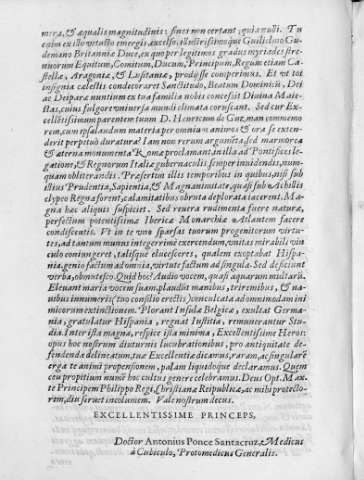 meræ, & æqualis magnitudinis: sinus non certant; quia nulli. Tu
enim ex illo vitæ to emergis excelso, illustrissimoque Guilielmo Gu-
demano Britanniæ Duce, ex quo per legitimos gradus myriades stre-
nuorum Equitum, Comitum, Ducum, Principum, Regum etiam Ca-
stellæ, Aragoniæ, & Lusitaniæ, prodijsse comperimus. Et vt tot
insignia cælestis condecoraret Sanctitudo, Beatum Dominicũ, Dei
ac Deiparæ nuntium ex tua familia nobis concessit Diuina Maie-
stas, cuius fulgore vniuersa mundi climata coruscant. Sed cur Ex-
cellẽtissimum parentem tuum D. Henricum de Guzman commemo
rem, cum ipsa laudum materia per omnium animos & ora se exten-
derit perpetuò duratura? Iam non rerum argumẽta, sed marmorea
& æterna monumenta Romæ proclamant, in illa ad Pontifices le-
gatione, & Regnorum Italiæ gubernaculis semper inuidendis, num-
quam obliterandis. Præsertim illis temporibus in quibus, nisi sub
istius Prudentia, Sapientia, & Magnanimitate, quasi sub Achillis
clypeo Regna forent, calamitatibus obruta deplorata iacerent. Ma-
gna hæc aliquis suspiciet. Sed reuera rudimenta fuere naturæ,
perfectum potentissimæ Ibericæ Monarchiæ Atlantem facere
condiscentis. Vt in te vno sparsas tuorum progenitorum virtu-
tes, ad tantum munus integerrimè exercendum, vnitas mirabili vin
culo coniungeret, talisque eluceseres, qualem exoptabat Hispa-
nia, genio factum ad omnia, virtute factum ad singula. Sed deficiunt
verba, obmutesco. Quid hoc? Audio vocem, quasi aquarum multarũ.
Eleuant maria vocem suam, plaudũt manibus, triremibus, & na-
uibus innumeris (tuo consilio erectis) conculcata ad omnimodam ini
micorum extinctionem. Plorant Insulæ Belgicæ, exultat Germa-
nia, gratulatur Hispania, regnat Iustitia, remunerantur Stu-
dia. Inter ista magna, respice ista minima, Excellentissime Heros:
opus hoc nostrum diuturnis lucubrationibus, pro antiquitate de-
fendenda delineatum, tuæ Excellentiæ dicamus, raram, ac singularẽ
erga te animi propensionem, palam liquidoque declaramus. Quem
ceu propitium numẽ hoc cultus genere celebramus. Deus Opt. Max.
te Principem Philippo Regi, Christianæ Reipublicæ, ac mihi protecto-
rem, diu seruet incolumem. Vale nostrum decus.
EXCELLENTISSIME PRINCEPS,
Doctor Antonius Ponce Santacruz, Medicus
à Cubiculo, Protomedicus Generalis.